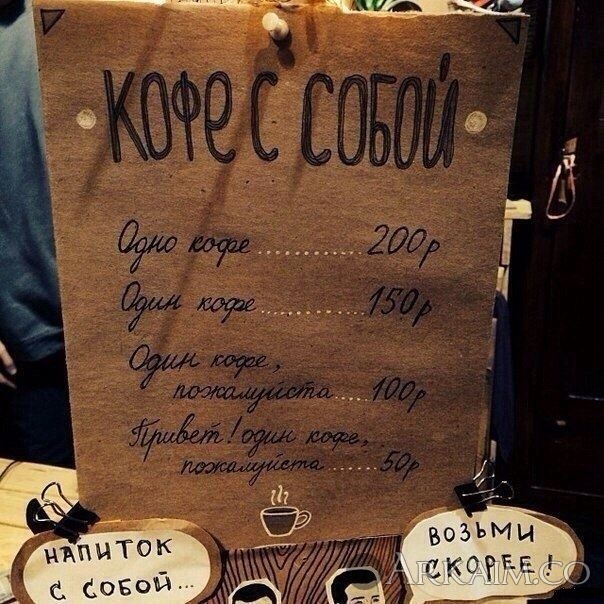 Кофе с собой
Одно кофе ............ 200р
Один кофе ............ 150р
Один кофе,
пожалуйста ..... 100р
Привет! один кофе, ...
пожалуйста ....... 50р
НАПИТОК
С СОБОЙ...
ВОЗЬМИ
СКОРЕЕ!
ARKAIM.CO